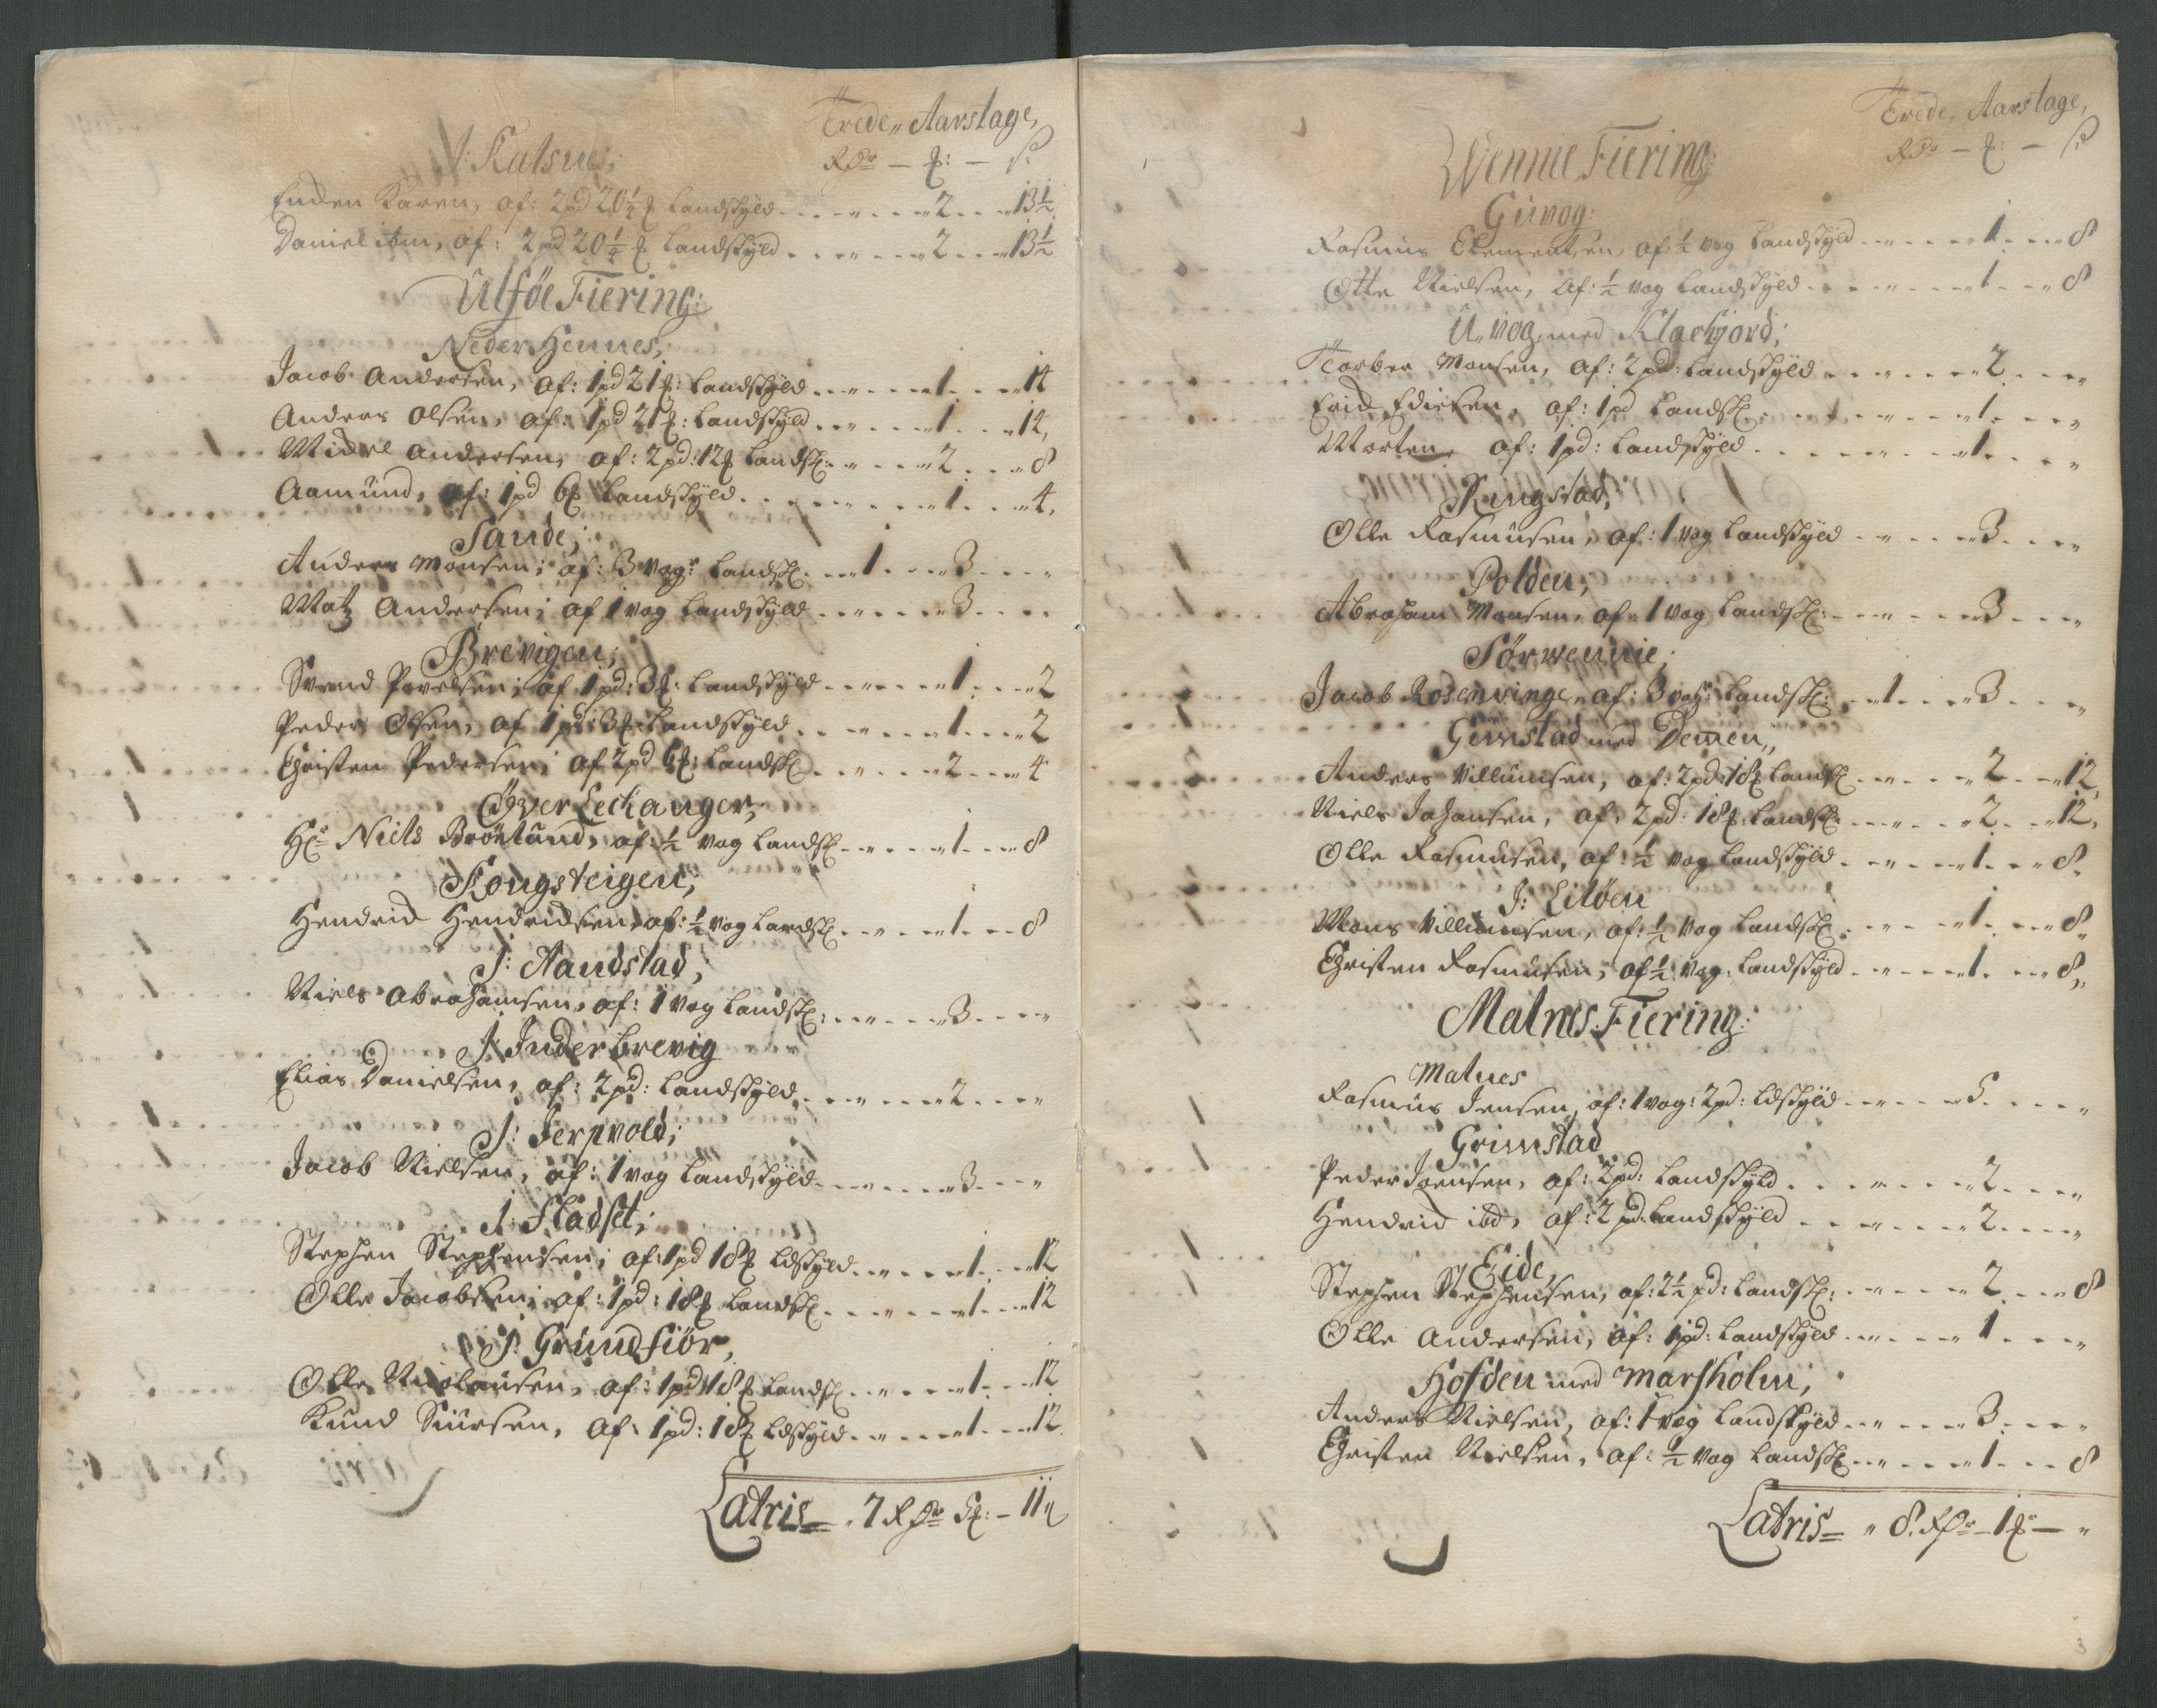 Trede, Aarstage,
J: Kalsnes;
Rdr — ℔: — ß
Enchen Karen, af: 2 pd 20¼ ℔ Landskyld 2 13½
Daniel ibm, af: 2 pd 20¼ ℔ Landskyld 2 13½
Ulføe Fiering:
Neder Hennes,
Jacob Andersen, af: 1 pd 21 ℔: Landskyld 1 14
Anders Olsen, af: 1 pd 21 ℔: Landskyld 1 14,
Michel Andersen, af: 2 pd: 12 ℔ Landsk: 2 8
Aamund, af: 1 pd 6 ℔ Landskyld 1 4,
Sande;
Anders Monsen; af: 3 vogr Landsk: 1 3
Matz Andersen; af 1 vog Landskyld 3
Brevigen;
Svend Povelsen; af 1 pd: 3 ℔: Landskyld 1 2
Peder Olsen, af 1 pd: 3 ℔: Landskyld 1 2
Christen Pedersen; af 2 pd 6 ℔: Landsk: 2 4
Øfver Lechanger,
Hr Niels Brønlund, af: ½ vog Landsk 1 8
Kongsteigen;
Hendrich Hendrichsen, af: ½ vog Landsk 1 8
J: Aandstad,
Niels Abrahamsen, af: 1 vog Landsk: 3
J: Inderbrevig
Elias Danielsen, af: 2 pd: Landskyld 2
J: Jernvold;
Jacob Nielsen, af: 1 vog Landskyld 3
J: Fladset;
Stephen Stephensen; af: 1 pd 18 ℔ Ldskyld 1 12
Olle Jacobsen; af: 1 pd: 18 ℔ Landsk 1 12
J: Grundfiør,
Olle Nicolausen, af: 1 pd 18 ℔ Landsk 1 12
Knud Siursen, af: 1 pd: 18 ℔ Ldskyld 1 12
Latris 7 Rdr 5 ℔: — 11 ß
Trede, Aarstage,
Wennie Fiering:
Rdr — ℔: — ß
Guvog:
Rasmus Clementsen, af: ½ vog Landskyld 1 8
Otte Nielsen, af: ½ vog Landskyld 1 8
U, vog med Klachjord;
Torber Monsen, af: 2 pd: Landskyld 2
Erich Edissen, af: 1 pd Landsk 1
Morten, af: 1 pd: Landskyld 1
Ringstad,
Olle Rasmusen, af: 1 vog Landskyld 3
Polden;
Abraham Monsen, af: 1 vog Landsk: 3
Sørwennie;
Jacob Rosenvinge, af: 3 vogr Landsk: 1 3
Gimstad med Demen,
Anders Villumsen, af: 2 pd: 18 ℔ Landsk 2 12,
Niels Johansen, af: 2 pd: 18 ℔: Landsk 2 12,
Olle Rasmusen, af: ½ vog Landskyld 1 8.
J: Litøen
Mons Villumsen, af: ½ vog Landsk 1 8,
Christen Rasmusen, af ½ vog: Landskyld 1 8,
Malnes Fiering:
Malnes
Rasmus Jensen, af: 1 vog: 2 pd: Ldskyld 5
Grimstad
Peder Joensen, af: 2 pd: Landskyld 2
Hendrich ibd, af: 2 pd Landskyld 2
Eide,
Stephen Stephensen, af: 2½ pd: Landsk: 2 8
Olle Andersen, af: 1 pd: Landskyld 1
Hofden med Marsholm;
Anders Nielsen, af: 1 vog Landskyld 3
Christen Nielsen, af: ½ vog Landsk 1 8
Latris 8. Rdr — 1 ℔ —
3